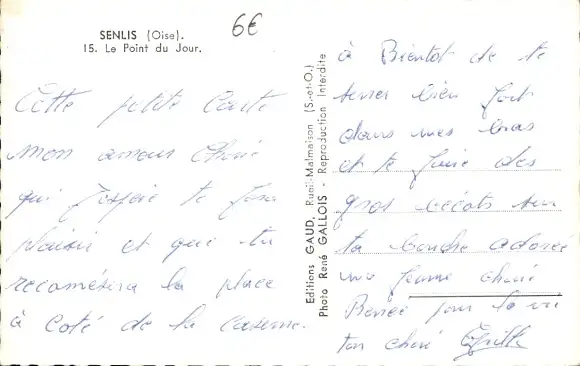 SENLIS (Oise).
15. Le Point du Jour.
6€
Cette petite Carte
mon amour Chéri
qui j'espère te fera
plaisir et que tu
recométra la place
à Coté de la Caserne.
Editions GAUD, Rueil-Malmaison (S.-et-O.)
Photo René GALLOIS - Reproduction Interdite
à Bientot de te
serrer bien fort
dans mes bras
et te faire des
gros bécots sur
ta bouche adorée
ma femme chéri
pour la vie
ton chéri